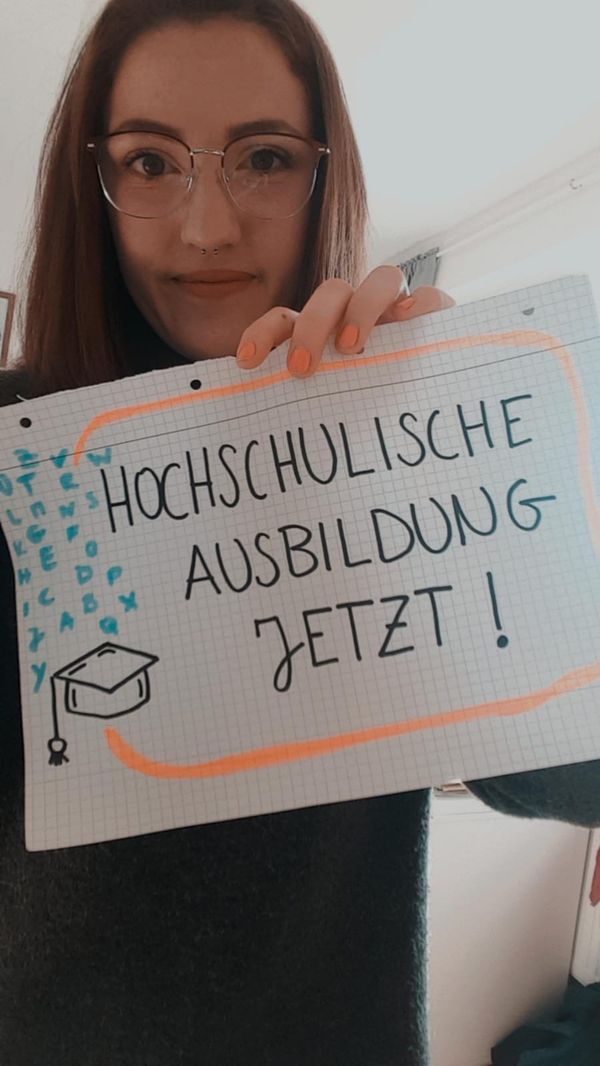 HOCHSCHULISCHE
AUSBILDUNG
JETZT!
Z V W
U T R S
L M N
K G F O
H E D P
I C B X
J A Q
Y